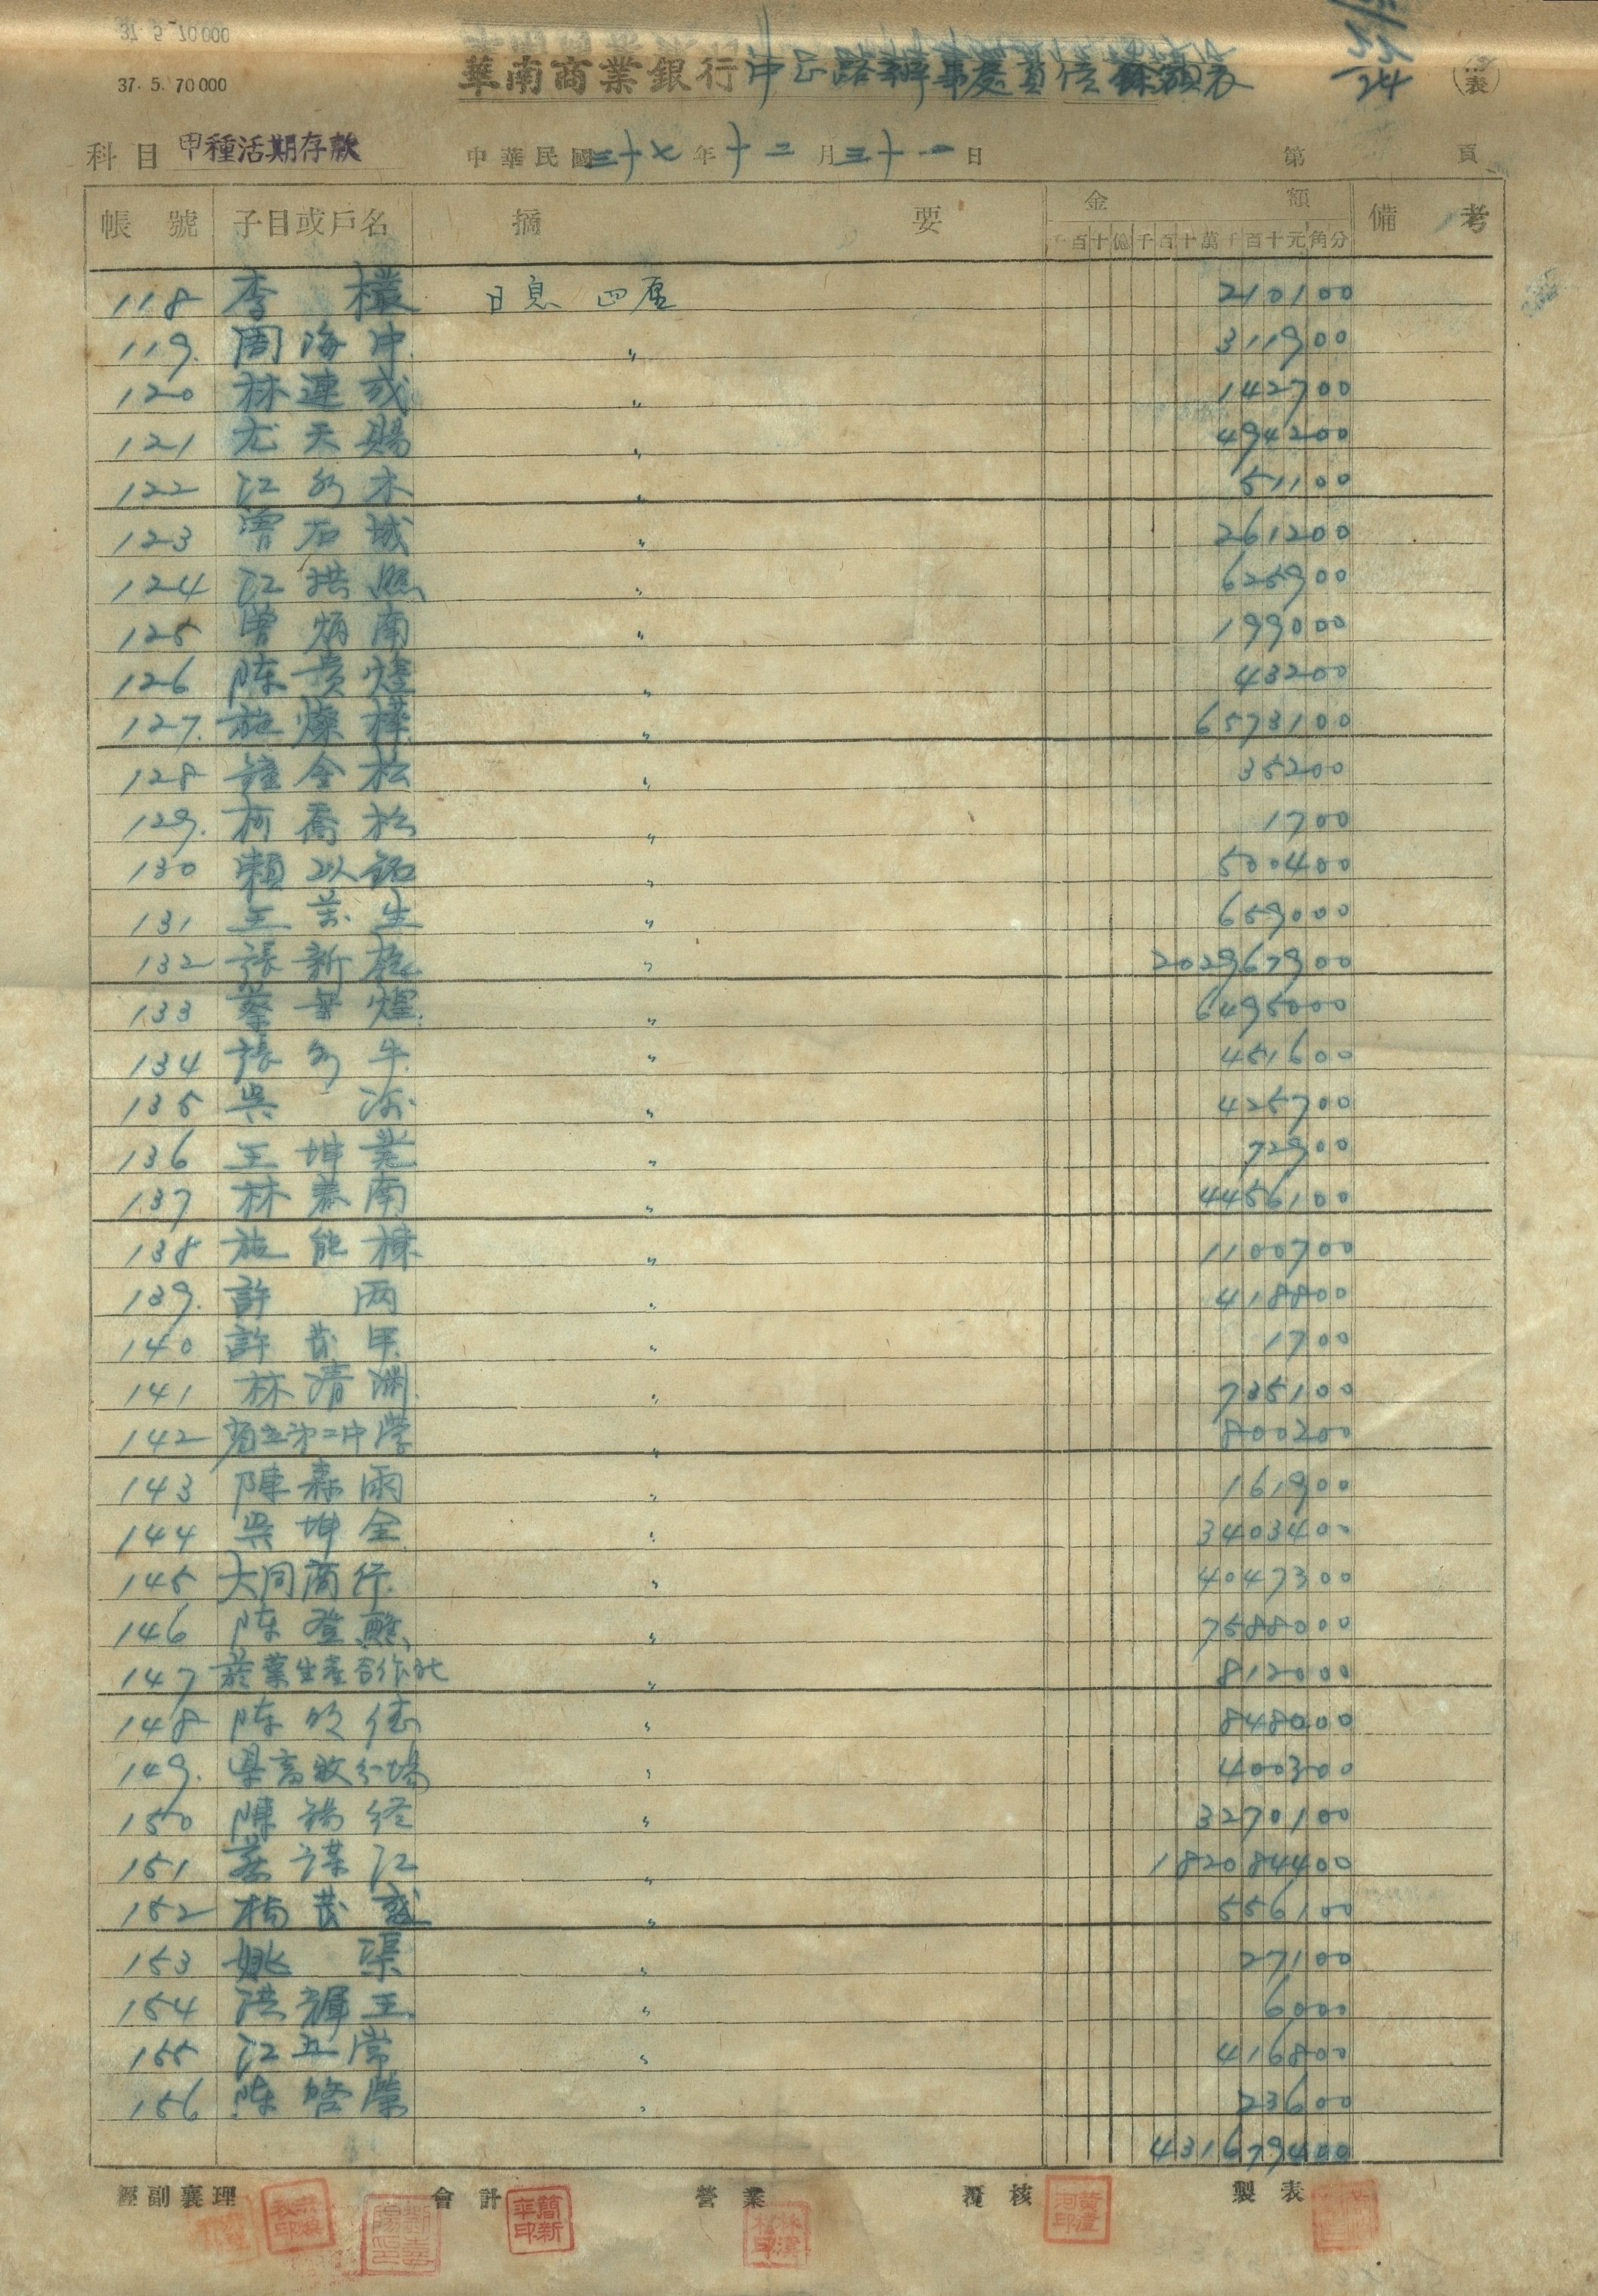 37. 5. 70000
華南商業銀行中正路辦事處負債餘額表
24
表
科目 甲種活期存款 中華民國三十七年十二月三十一日 第 頁
帳號 子目或戶名 摘要 金額 備考
千百十億千百十萬千百十元角分
118 李 日息 四厘 210100
119. 周海中 〃 311900
120 林連 〃 142700
121 尤天賜 〃 494200
122 江水木 〃 51100
123 曾石城 〃 261200
124 江拱照 〃 625900
125 曾炳南 〃 199000
126 陈貴煌 〃 43200
127. 施燦 〃 6573100
128 鐘金松 〃 35200
129. 柯喬松 〃 1700
130 賴以銘 〃 500400
131 王芳生 〃 659000
132 張新 〃 202967900
133 蔡 煌 〃 6495000
134 張水牛 〃 451600
135 吳 〃 425700
136 王坤 〃 72900
137 林 南 〃 4456100
138 施能 〃 1100700
139. 許 両 〃 418800
140 許 〃 1700
141 林清渊 〃 735100
142 省立第二中学 〃 800200
143 陳森雨 〃 161900
144 吳坤全 〃 3403400
145 大同商行 〃 4047300
146 陈登 〃 7588000
147 菸葉生產合作社 〃 812000
148 陈欣 〃 848000
149. 県畜牧分場 〃 400300
150 陳錫経 〃 3270100
151 謀江 〃 182084400
152 楊茂 〃 556100
153 姚 渠 〃 27100
154 洪耀王 〃 6000
155 江五常 〃 416800
156 陈啓榮 〃 23600
431679400
經副襄理 會計 營業 覆核 製表
簡新
華印
黃澄
河印